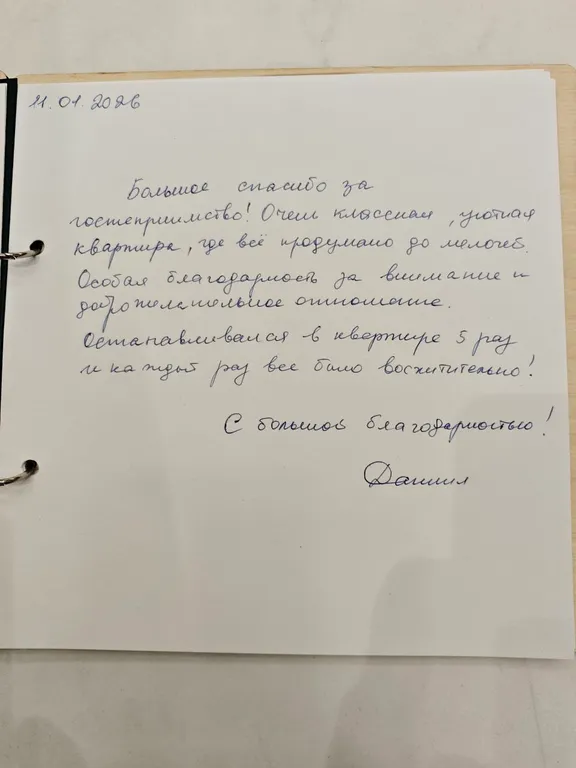 11.01.2026
Большое спасибо за
гостеприимство! Очень классная, уютная
квартира, где всё продумано до мелочей.
Особая благодарность за внимание и
доброжелательное отношение.
Останавливался в квартире 5 раз
и каждый раз все было восхитительно!
С большой благодарностью!
Даниил